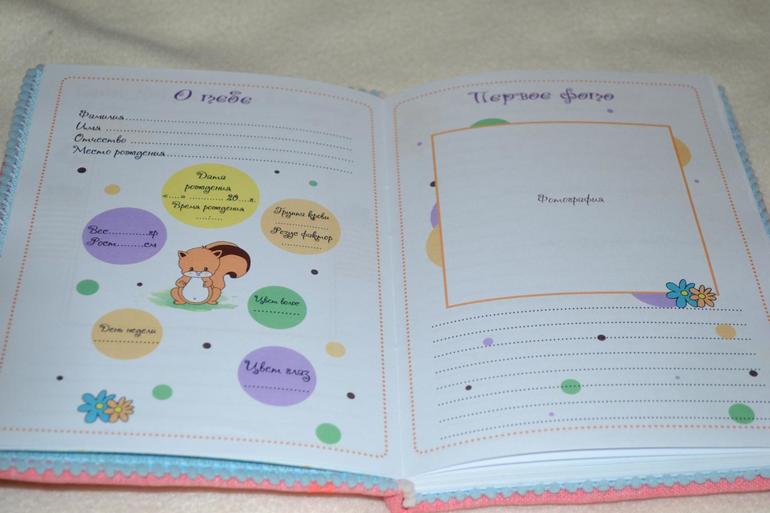 О тебе
Фамилия
Имя
Отчество
Место рождения
Дата
рождения
«....» ........... 20....г.
Время рождения
....:....
Вес...........гр
Рост.........см
Группа крови
Резус фактор
Цвет волос
День недели
Цвет глаз
Первое фото
Фотография